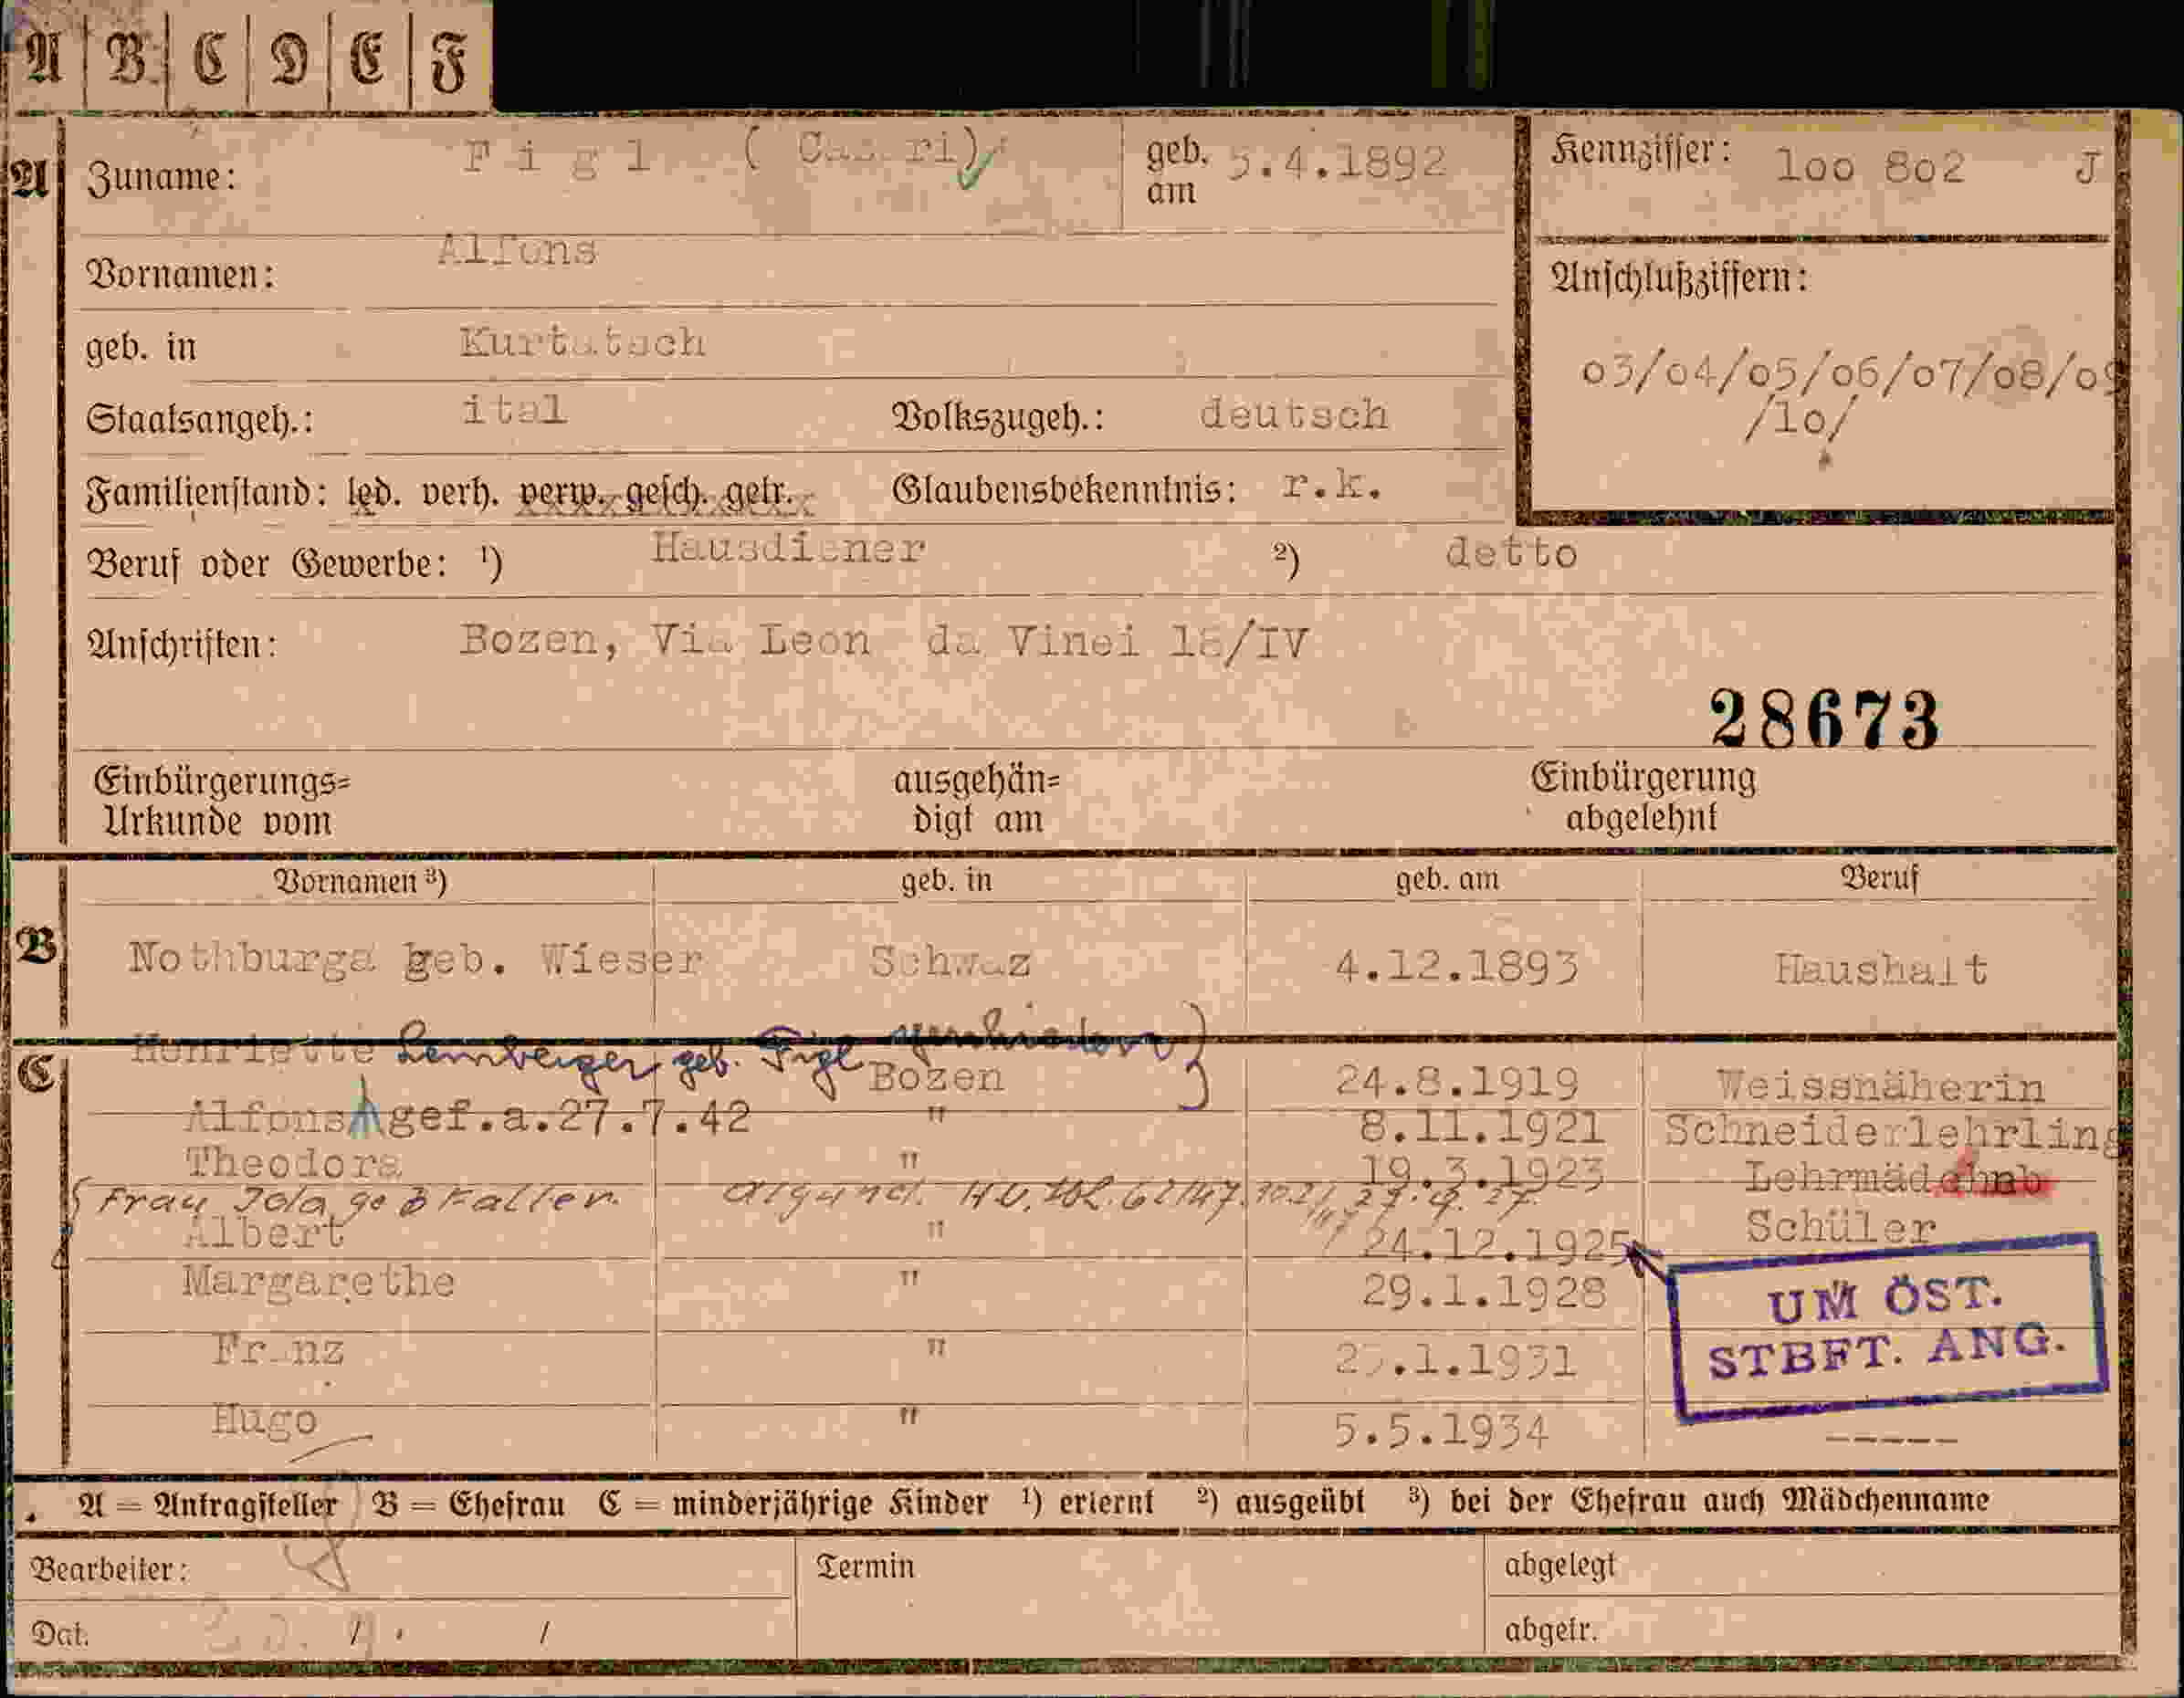 A B C D E F
A Zuname: Figl ( Cas ri) geb. am 5.4.1892 Kennziffer: 100 802 J
Vornamen: Alfons
Anschlußziffern:
geb. in Kurtatsch
03/04/05/06/07/08/09
/10/
Staatsangeh.: ital Volkszugeh.: deutsch
Familienstand: led. verh. verw. gesch. getr. Glaubensbekenntnis: r.k.
Beruf oder Gewerbe: ¹) Hausdiener ²) detto
Anschriften: Bozen, Via Leon da Vinci 18/IV
28673
Einbürgerungs=
Urkunde vom
ausgehän=
digt am
Einbürgerung
abgelehnt
Vornamen ³) geb. in geb. am Beruf
B Nothburga geb. Wieser Schwaz 4.12.1893 Haushalt
C Henriette Lemberger geb. Figl geschieden Bozen 24.8.1919 Weissnäherin
Alfons gef.a.27.7.42 " 8.11.1921 Schneiderlehrling
Theodora " 19.3.1923 Lehrmäd
Frau Jola geb Kaller.
Albert " 24.12.1925 Schüler
Margarethe " 29.1.1928
UM ÖST.
STBFT. ANG.
Franz " .1.1931
Hugo " 5.5.1934 -----
A = Antragsteller B = Ehefrau C = minderjährige Kinder ¹) erlernt ²) ausgeübt ³) bei der Ehefrau auch Mädchenname
Bearbeiter: Termin abgelegt
Dat. abgetr.